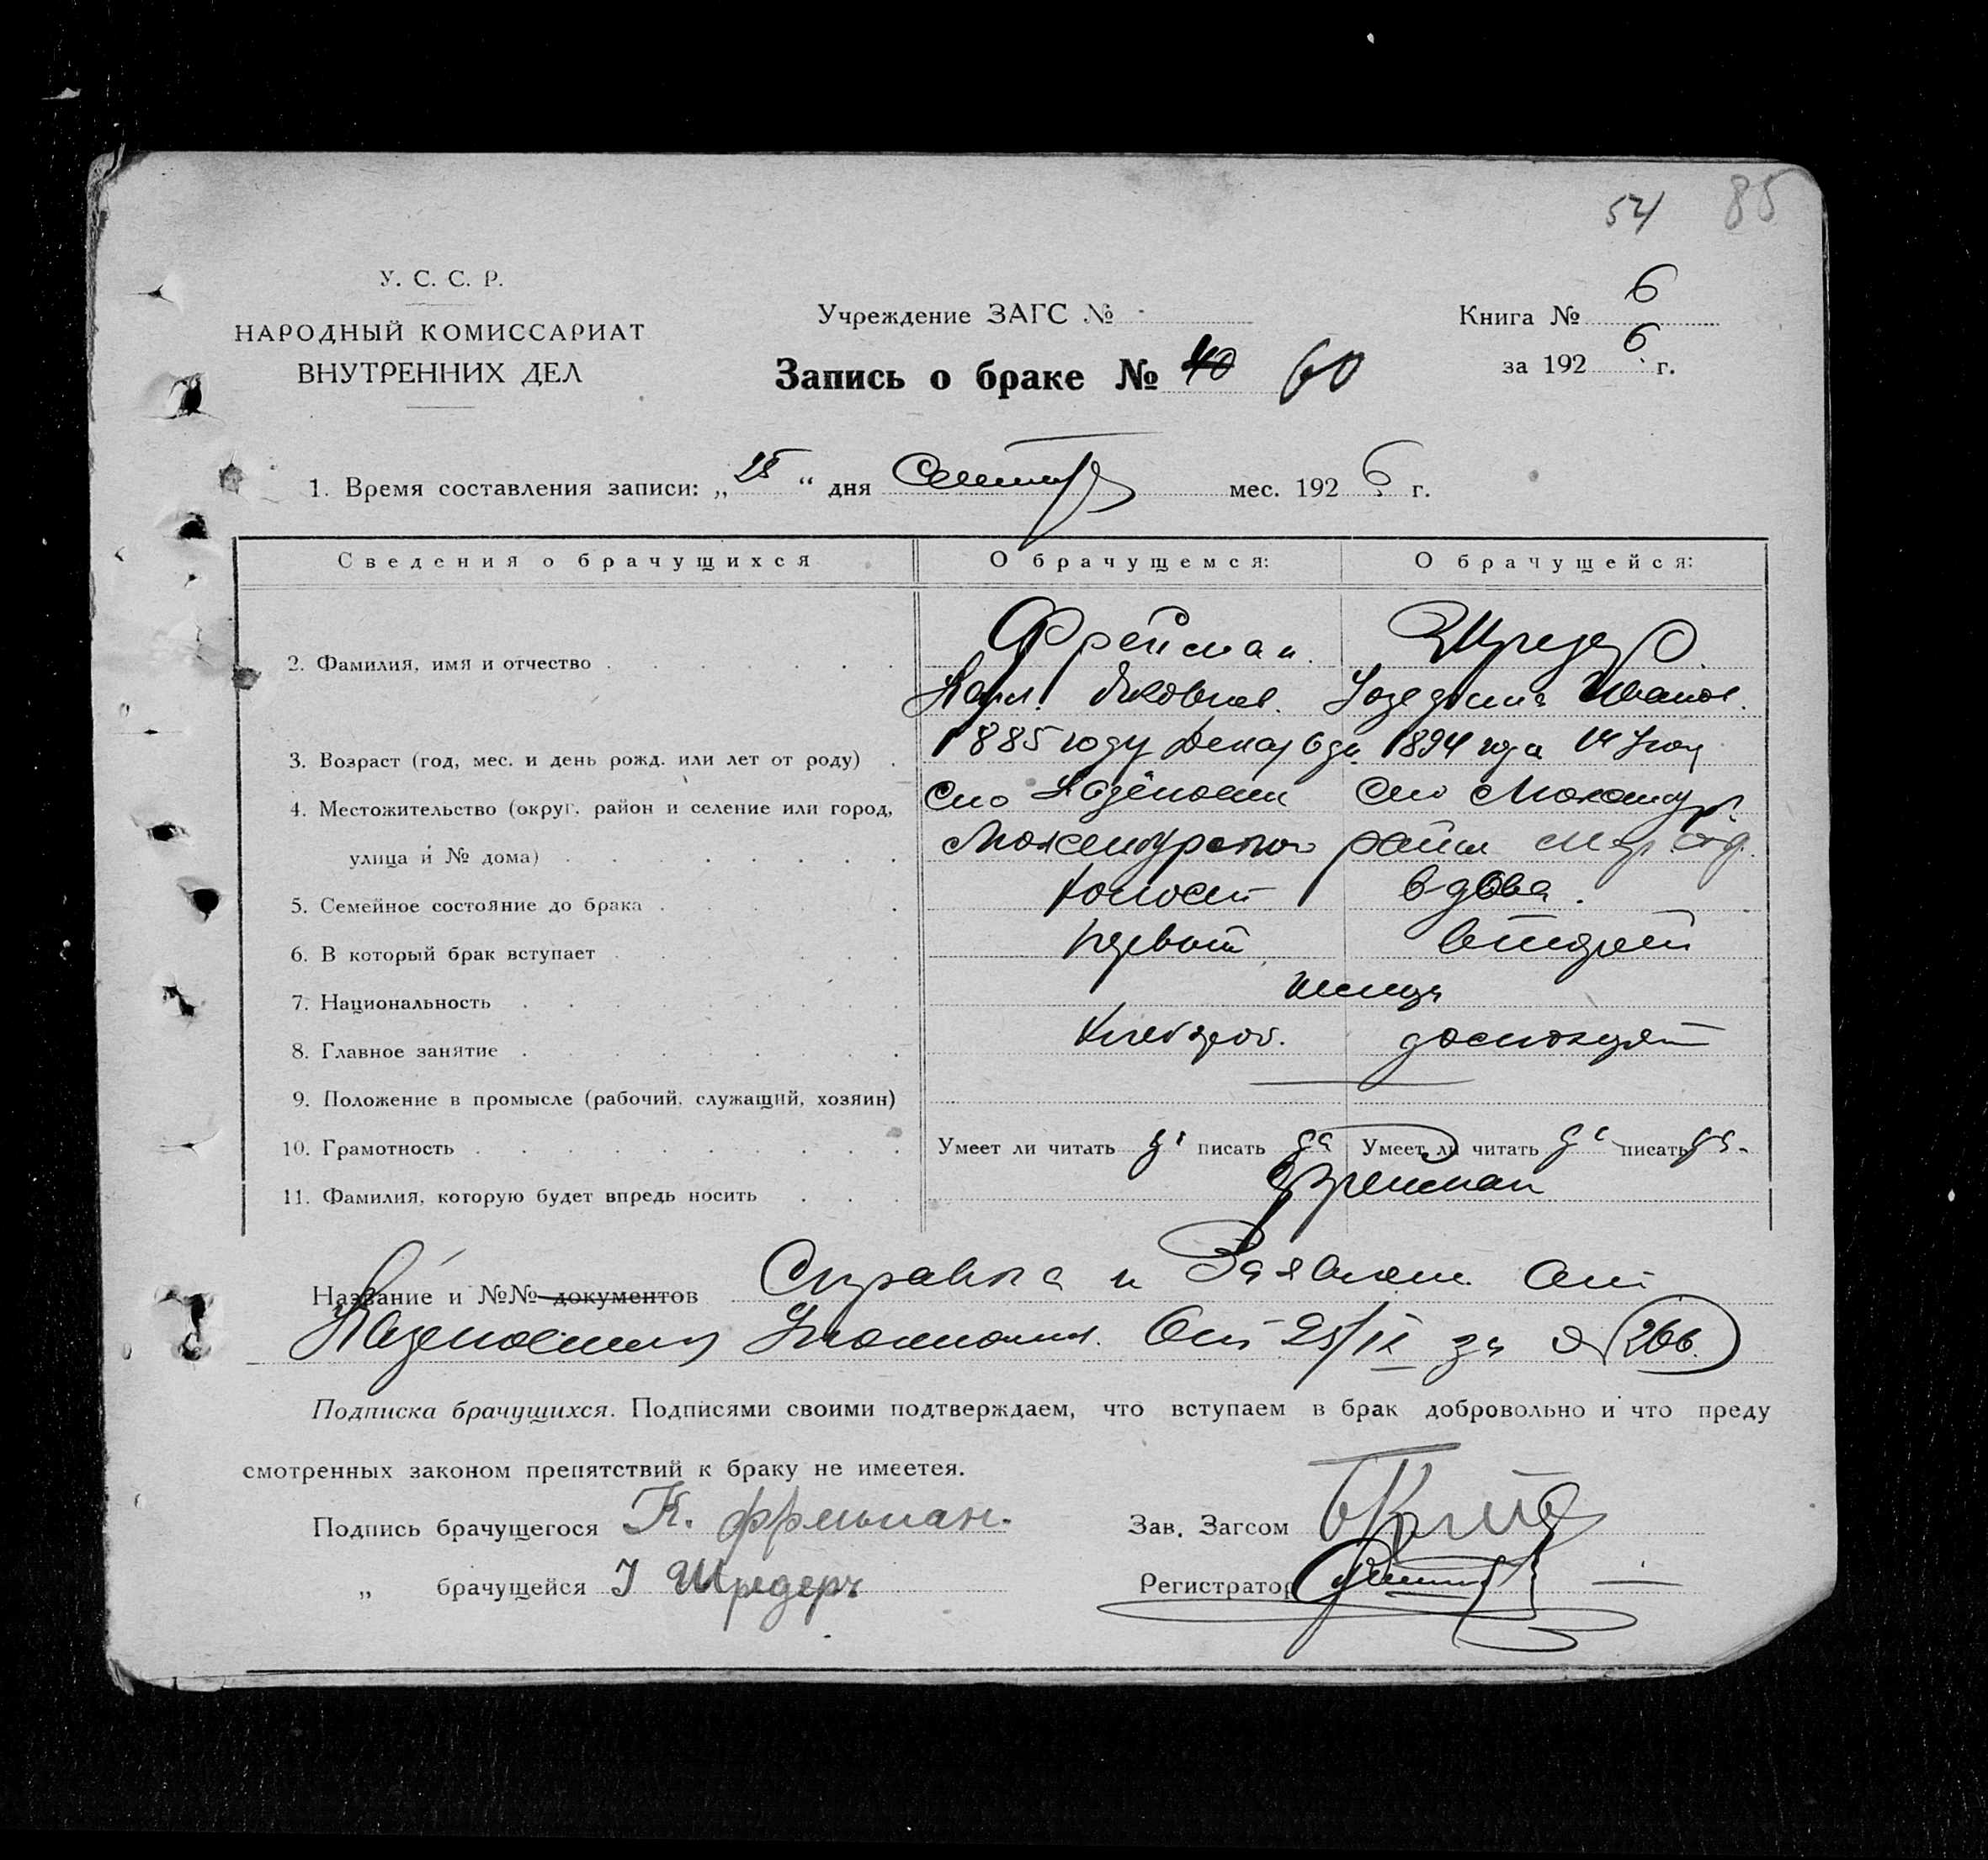 54 85
У. С. С. Р.
НАРОДНЫЙ КОМИССАРИАТ
ВНУТРЕННИХ ДЕЛ
Учреждение ЗАГС №
Запись о браке № 40 60
Книга № 6
за 192 6 г.
1. Время составления записи: „25“ дня Сентяб мес. 192 6 г.
Сведения о брачущихся О брачущемся: О брачущейся:
2. Фамилия, имя и отчество Фрейман. Шредер.
Карл. Яковлев. Иозефина Иванов.
3. Возраст (год, мес. и день рожд. или лет от роду) 1885 году Декаб 6 дн. 1894 года 14
4. Местожительство (округ, район и селение или город, село село
улица и № дома) район
5. Семейное состояние до брака холост вдова.
6. В который брак вступает первый второй
7. Национальность немцы
8. Главное занятие хлебороб. домохозяй
9. Положение в промысле (рабочий, служащий, хозяин)
10. Грамотность Умеет ли читать да писать да Умеет ли читать да писать да.
11. Фамилия, которую будет впредь носить Фрейман
Название и №№ документов Справка и Заявлен. От
От 25/IX за № 266.
Подписка брачущихся. Подписями своими подтверждаем, что вступаем в брак добровольно и что преду
смотренных законом препятствий к браку не имеется.
Подпись брачущегося К. Фрейман. Зав. Загсом
„ брачущейся І Шредеръ Регистратор